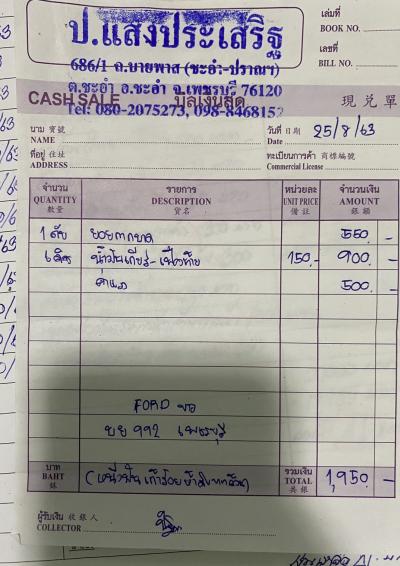 ป.แสงประเสริฐ
686/1 ถ.บายพาส (ชะอำ-ปราณฯ)
ต.ชะอำ อ.ชะอำ จ.เพชรบุรี 76120
Tel: 080-2075273, 098-8468152
เล่มที่
BOOK NO.
เลขที่
BILL NO.
CASH SALE บิลเงินสด 現兑單
นาม 寳號
NAME
วันที่ 日期 25/8/63
Date
ที่อยู่ 住址
ADDRESS
ทะเบียนการค้า 商標編號
Commercial License
จำนวน รายการ หน่วยละ จำนวนเงิน
QUANTITY DESCRIPTION UNIT PRICE AMOUNT
數量 貨名 備註 銀額
1 ตับ 550 -
6 ลิตร น้ำมันเกียร์-เฟืองท้าย 150.- 900 -
ค่าแรง 500 -
FORD
บย 992 เพชรบุรี
บาท รวมเงิน
BAHT TOTAL 1,950 -
銖 共銀
(หนึ่งพันเก้าร้อยห้าสิบบาทถ้วน)
ผู้รับเงิน 收銀人
COLLECTOR